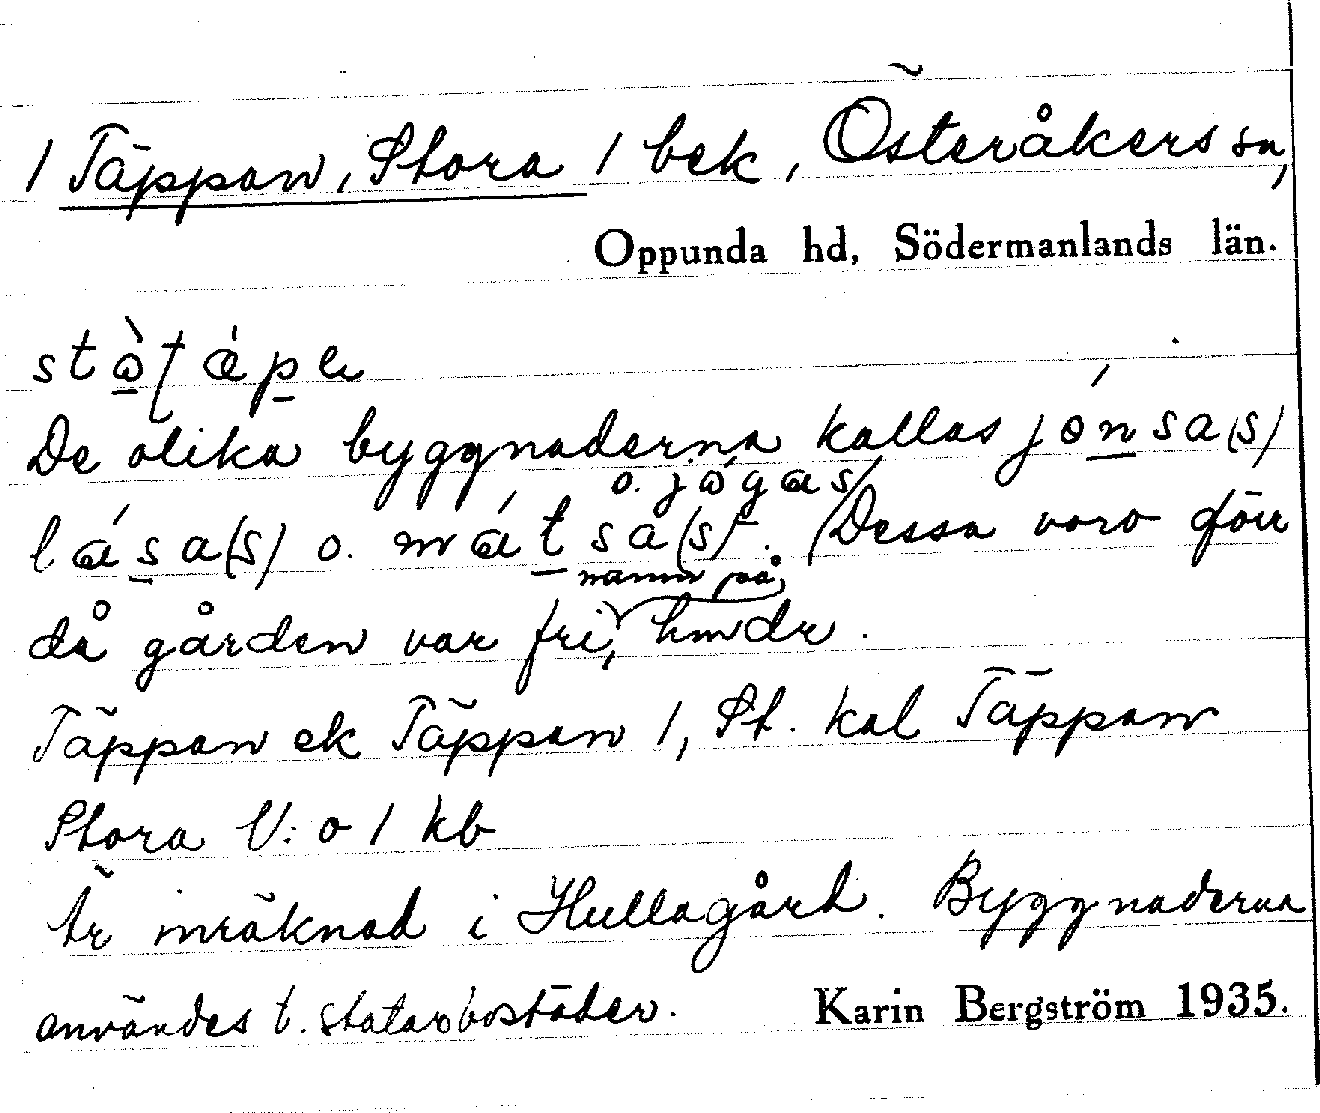 / Täppan, Stora / bek, Österåkers sn,
Oppunda hd, Södermanlands län.
stòtǽpa
De olika byggnaderna kallas jónsa(s)
o. jógas
lása(s) o. mátsa(s). (Dessa voro förr
namn på
då gården var fri, hmdr.
Täppan ek Täppan 1, St. kal Täppan
Stora V: o 1 kb
Är inräknad i Hullagård. Byggnaderna
användes t. statarbostäder. Karin Bergström 1935.